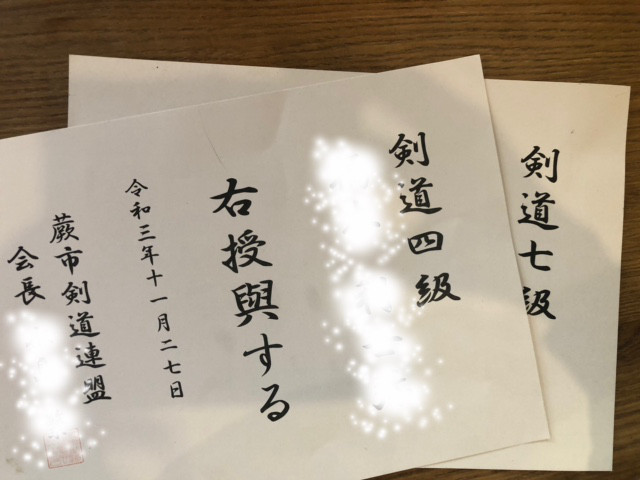 剣道七級
剣道四級
右授與する
令和三年十一月二七日
蕨市剣道連盟
会長